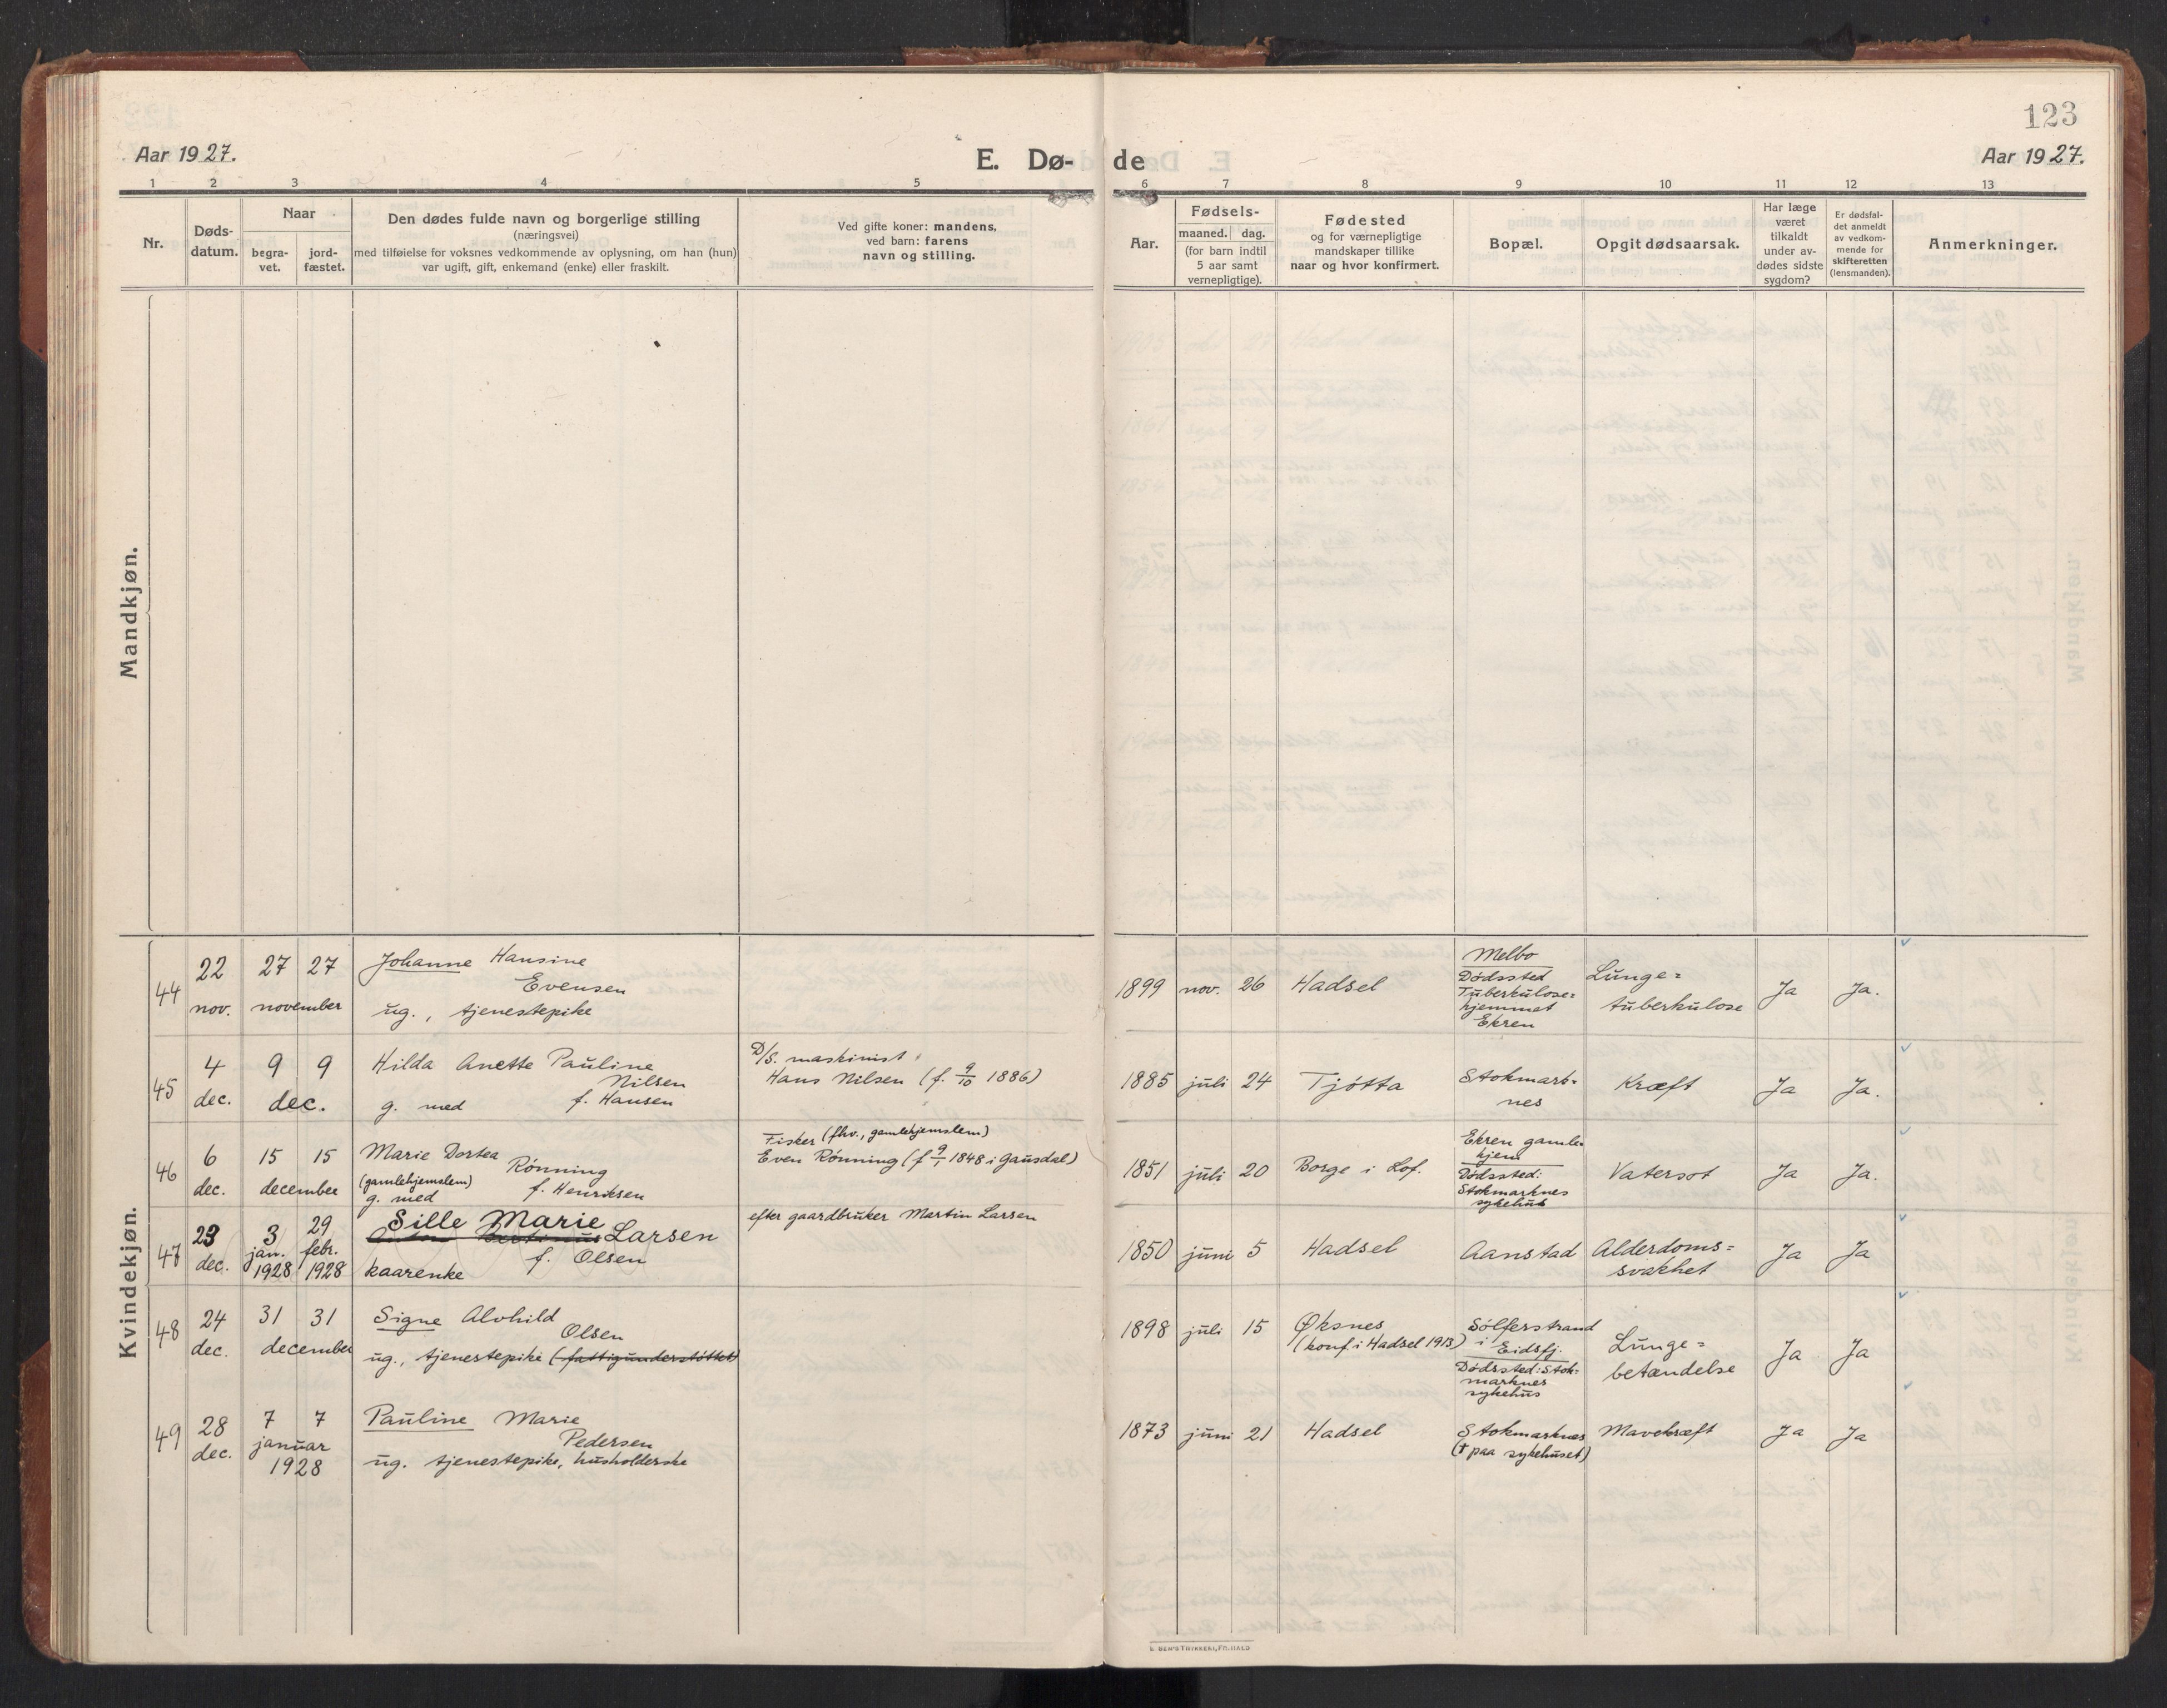 123
Aar 1927.
E. Dø- de
Aar 1927.
1 2 3 4 5 6 7 8 9 10 11 12 13
Nr.
Døds-
datum.
Naar
begra-
vet.
jord-
fæstet.
Den dødes fulde navn og borgerlige stilling
(næringsvei)
med tilføielse for voksnes vedkommende av oplysning, om han (hun)
var ugift, gift, enkemand (enke) eller fraskilt.
Ved gifte koner: mandens,
ved barn: farens
navn og stilling.
Fødsels-
Aar.
maaned. dag.
(for barn indtil
5 aar samt
vernepligtige).
Fødested
og for værnepligtige
mandskaper tillike
naar og hvor konfirmert.
Bopæl.
Opgit dødsaarsak.
Har læge
været
tilkaldt
under av-
dødes sidste
sygdom?
Er dødsfal-
det anmeldt
av vedkom-
mende for
skifteretten
(lensmanden).
Anmerkninger.
Mandkjøn.
Kvindekjøn.
44
22
nov.
27 27
november
Johanne Hansine
Evensen
ug., tjenestepike
1899 nov. 26
Hadsel
Melbo
Dødssted
Tuberkulose=
hjemmet
Ekren
Lunge=
tuberkulose
Ja Ja.
45
4
dec.
9 9
dec.
Hilda Anette Pauline
Nilsen
g. med f. Hansen
D/S. maskinist
Hans Nilsen (f. 9/10 1886)
1885 juli 24
Tjøtta
Stokmark-
nes
Kræft
Ja Ja.
46
6
dec.
15 15
december
Marie Dortea
Rønning
(gamlehjemslem)
g. med f. Henriksen
Fisker (fhv., gamlehjemslem)
Even Rønning (f 9/1 1848 i Gausdal)
1851 juli 20
Borge i Lof.
Ekren gamle-
hjem
Dødssted:
Stokmarknes
sykehus
Vatersot
Ja Ja.
47
23
dec.
3
jan.
1928
29
febr.
1928
Sille Marie
Larsen
f. Olsen
kaarenke
efter gaardbruker Martin Larsen
1850 juni 5
Hadsel
Aanstad
Alderdoms=
svakhet
Ja Ja
48
24
dec.
31 31
december
Signe Alvhild
Olsen
ug., tjenestepike (fattigunderstøttet)
1898 juli 15
Øksnes
(konf. i Hadsel 1913)
Sølferstrand
i Eidsfj.
Dødssted: Stok-
marknes
sykehus
Lunge=
betændelse
Ja Ja
49
28
dec.
7 7
januar
1928
Pauline Marie
Pedersen
ug. tjenestepike, husholderske
1873 juni 21
Hadsel
Stokmarknes
(† paa sykehuset)
Mavekræft
Ja Ja